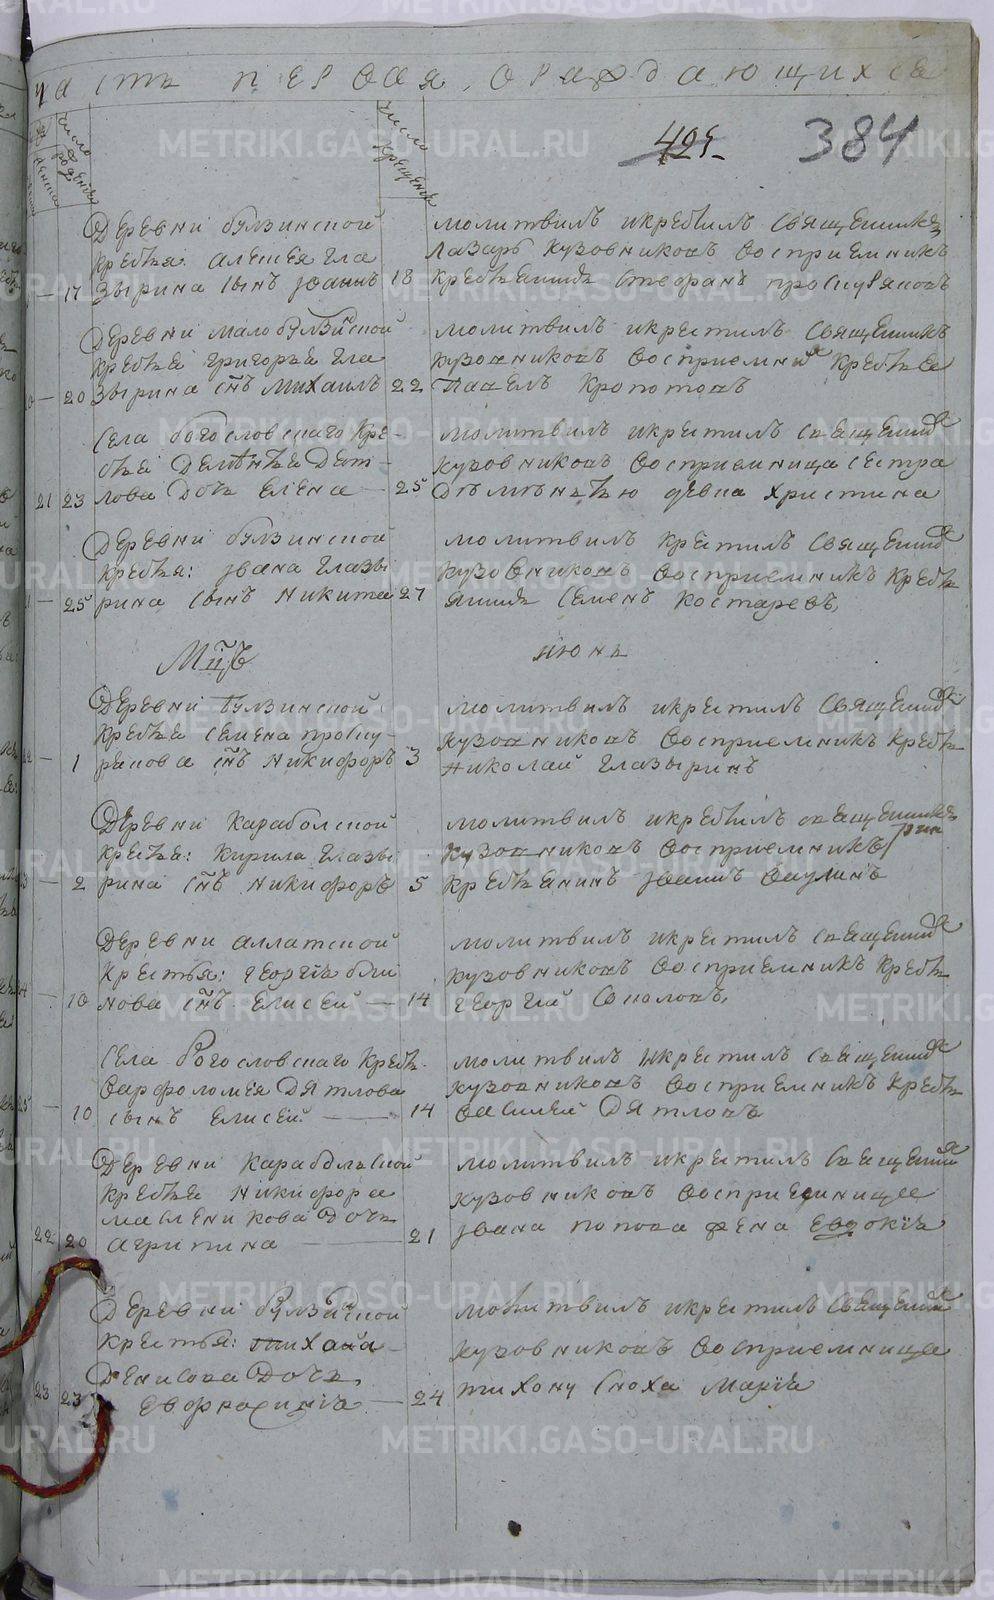 часть первая, о раждающихся
число рожденія
число крещенія
421
384
Деревни булзинской
крестья: алексея гла
17 зырина сынъ іоаннъ 18
молитвилъ икрестилъ священникъ
лазарь кузовниковъ восприемникъ
крестьянинъ стефанъ проскуряковъ
Деревни малобулзинской
крестья григорья гла
20 зырина снъ михаилъ 22
молитвилъ икрестилъ священникъ
кузовниковъ восприемникъ крестья
Павелъ кропотовъ
Села богословскаго кре-
стья Дементья Дят-
21 23 лова Дочь елена 25
молитвилъ икрестилъ священникъ
кузовниковъ восприемница сестра
Дементью девка христина
Деревни булзинской
крестья: івана глазы
25 рина сынъ никита 27
молитвилъ крестилъ священникъ
кузовниковъ восприемникъ кресть
янинъ семенъ костаревъ,
Мцъ июнь
Деревни булзинской
крестья семена проску
1 рякова снъ никифоръ 3
молитвилъ икрестилъ священникъ
кузовниковъ восприемникъ кресть
николай глазыринъ
Деревни караболской
крестья: кирила глазы
2 рина снъ никифоръ 5
молитвилъ икрестилъ священникъ
кузовниковъ восприемникъ
крестьянинъ іванъ ваулинъ
Деревни аллатской
крестья: георгія бли
10 нова снъ елисей 14
молитвилъ икрестилъ священникъ
кузовниковъ восприемникъ кресть
георгий соколовъ,
Села богословскаго кресть
варфоломея Дятлова
10 сынъ елисей 14
молитвилъ икрестилъ священникъ
кузовниковъ восприемникъ кресть
василей Дятловъ
Деревни карабольской
крестья никифора
масленикова Дочь
22 20 агрипина 21
молитвилъ икрестилъ священникъ
кузовниковъ восприемница
івана попова жена евдокія
Деревни булзинской
крестья: тихана
Денисова Дочь
23 23 евфросинія 24
молитвилъ икрестилъ священникъ
кузовниковъ восприемница
тихону сноха марія
METRIKI.GASO-URAL.RU